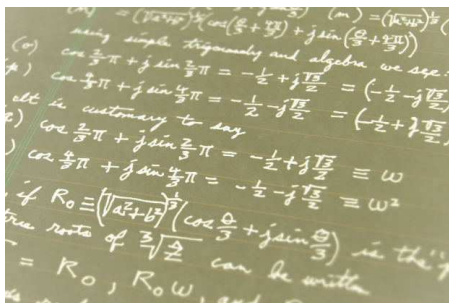 (m) = (√a²+b²)^⅓ (cos(θ/3 + 4π/3) + j sin(θ/3 + 4π/3))
using simple trigonometry and algebra we see:
(o) cos ⅔π + j sin ⅔π = -½ + j √3/2 = (-½ - j √3/2)
p) cos 4/3 π + j sin 4/3 π = -½ - j √3/2 = (-½ + j √3/2)
It is customary to say
cos ⅔π + j sin ⅔π = -½ + j √3/2 ≡ ω
) cos 4/3 π + j sin 4/3 π = -½ - j √3/2 ≡ ω²
if R₀ ≡ (√a²+b²)^⅓ (cos θ/3 + j sin θ/3) is the
roots of ∛Z can be written
= R₀, R₀ω, and